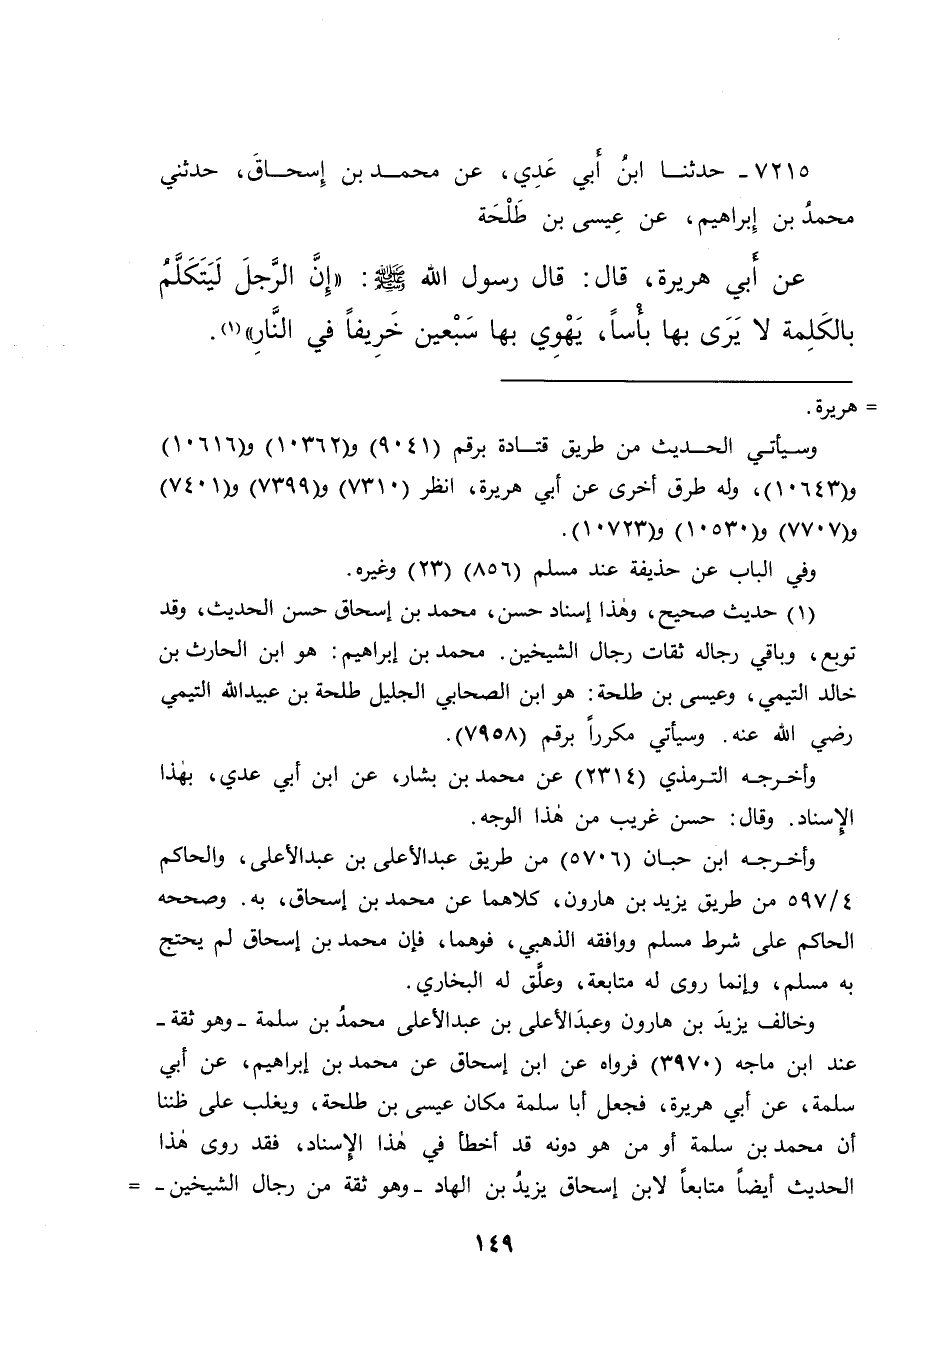 ٧٢١٥ـ حدثنـــا ابنُ أَبي عَدِي، عن محمــد بن إِسحــاقَ، حدثني
محمدُ بن إِبراهيم، عن عِيسى بن طَلْحَة
عن أَبي هريرة، قال: قال رسول الله ﷺ: «إِنَّ الرَّجلَ لَيَتَكَلَّمُ
بالكَلِمة لا يَرَى بها بأْساً، يَهْوِي بها سَبْعين خَرِيفاً في النَّارِ»(١).
= هريرة.
وسـيأتـي الحــديث من طريق قتـادة برقم (٩٠٤١) و(١٠٣٦٢) و(١٠٦١٦)
و(١٠٦٤٣)، وله طرق أخرى عن أبي هريرة، انظر (٧٣١٠) و(٧٣٩٩) و(٧٤٠١)
و(٧٧٠٧) و(١٠٥٣٠) و(١٠٧٢٣).
وفي الباب عن حذيفة عند مسلم (٨٥٦) (٢٣) وغيره.
(١) حديث صحيح، وهٰذا إسناد حسن، محمد بن إسحاق حسن الحديث، وقد
توبع، وباقي رجاله ثقات رجال الشيخين. محمد بن إبراهيم: هو ابن الحارث بن
خالد التيمي، وعيسى بن طلحة: هو ابن الصحابي الجليل طلحة بن عبيدالله التيمي
رضي الله عنه. وسيأتي مكرراً برقم (٧٩٥٨).
وأخـرجـه التـرمذي (٢٣١٤) عن محمد بن بشار، عن ابن أبي عدي، بهٰذا
الإِسناد. وقال: حسن غريب من هٰذا الوجه.
وأخـرجـه ابن حبـان (٥٧٠٦) من طريق عبدالأعلى بن عبدالأعلى، والحاكم
٥٩٧/٤ من طريق يزيد بن هارون، كلاهما عن محمد بن إسحاق، به. وصححه
الحاكم على شرط مسلم ووافقه الذهبي، فوهما، فإن محمد بن إسحاق لم يحتج
به مسلم، وإنما روى له متابعة، وعلَّق له البخاري.
وخالف يزيدَ بن هارون وعبدَالأعلى بن عبدالأعلى محمدُ بن سلمة ـ وهو ثقة ـ
عند ابن ماجه (٣٩٧٠) فرواه عن ابن إسحاق عن محمد بن إبراهيم، عن أبي
سلمة، عن أبي هريرة، فجعل أبا سلمة مكان عيسى بن طلحة، ويغلب على ظننا
أن محمد بن سلمة أو من هو دونه قد أخطأ في هٰذا الإِسناد، فقد روى هٰذا
الحديث أيضاً متابعاً لابن إسحاق يزيدُ بن الهاد ـ وهو ثقة من رجال الشيخين ـ =
١٤٩